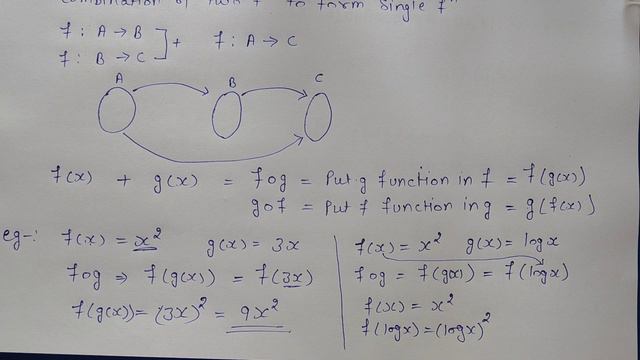 combination of two fⁿ to form single fⁿ
f : A → B
f : B → C ] + f : A → C
A B C
f(x) + g(x) = fog = Put g function in f = f(g(x))
gof = Put f function in g = g(f(x))
eg-: f(x) = x² g(x) = 3x
fog ⇒ f(g(x)) = f(3x)
f(g(x)) = (3x)² = 9x²
f(x) = x² g(x) = logx
fog = f(g(x)) = f(logx)
f(x) = x²
f(logx) = (logx)²